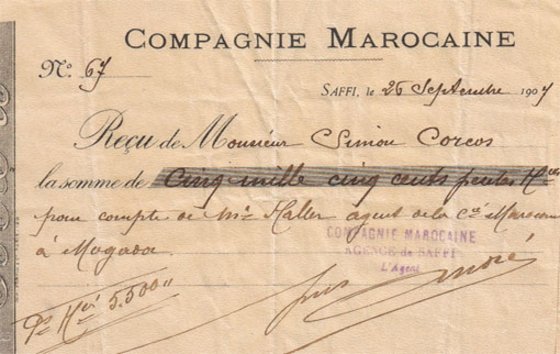 COMPAGNIE MAROCAINE
Nº 67
SAFFI, le 26 Septembre 1907
Reçu de Monsieur Simon Corcos
la somme de Cinq mille cinq cents pesetas H
pour compte de Mr Haller agent de la Cie Marocaine
à Mogador
COMPAGNIE MAROCAINE
AGENCE de SAFFI
L'Agent
Pts 5.500